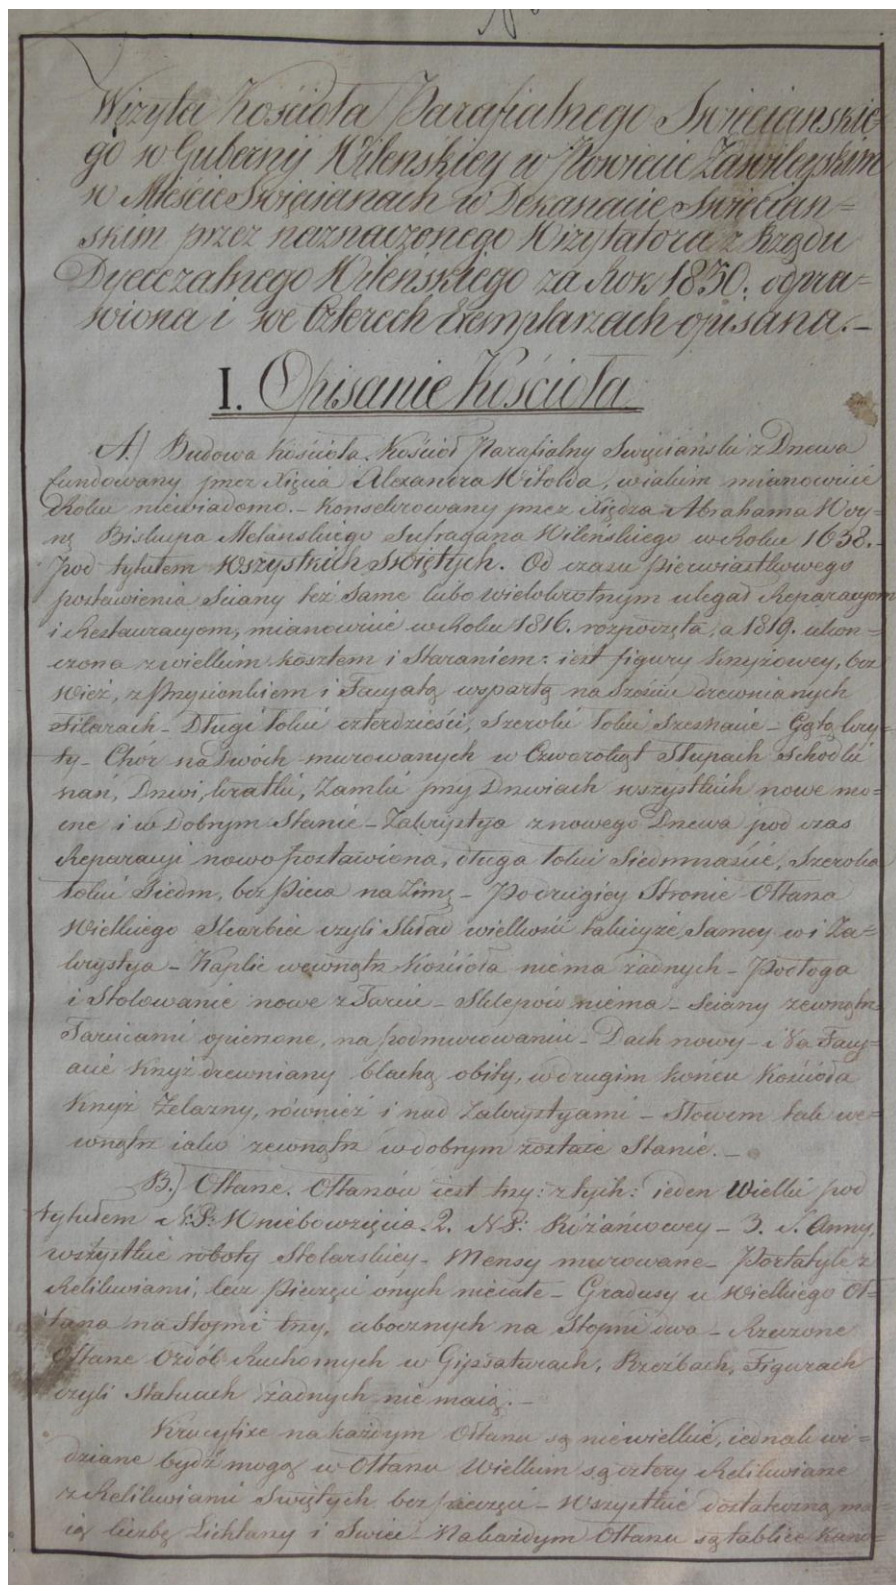 Wizyta Kościoła Parafialnego Swięcianskie
go w Gubernij Wilenskiey w Powiecie Zawileyskim
w Mieście Swięcianach w Dekanacie Swięcian=
skim przez naznaczonego Wizytatora z Rzędu
Dyecezalnego Wileńskiego za Rok 1830. odpra=
wiona i we Czterech Exemplarzach opisana.—
I. Opisanie Kościoła
A.) Budowa Kościoła. Kościoł Parafialny Swięciański z Drzewa
fundowany przez Xięcia Alexandra Witolda, w iakim mianowicie
Roku niewiadomo.— Konsekrowany przez Xiędza Abrahama Woy-
nę Biskupa Melanskiego Sufragana Wileńskiego w Roku 1638.—
Pod tytułem Wszystkich Swiętych. Od czasu pierwiastkowego
postawienia Sciany też same lubo wielokrotnym ulegał Reparacyom
i Restauracyom, mianowicie w Roku 1816. rozpoczęta, a 1819. ukon=
czona z wielkim kosztem i Staraniem: iest figury Krzyżowey, bez
Wież, z Przysionkiem i Facyatą wspartą na Sześciu drewnianych
Filarach — Długi łokci czterdzieści, Szeroki łokci Szesnaście — Gątą kry=
ty — Chór na Dwóch murowanych w Czworokąt Słupach Schodki
nań, Drzwi, kratki, Zamki przy Drzwiach wszystkich nowe mo=
cne i w Dobrym Stanie — Zakrystya z nowego Drzewa pod czas
Reparacyi nowo postawiona, długa łokci Siedmnaście, Szeroka
łokci Siedm, bez Pieca na Zimę — Po drugiey Stronie Ołtarza
Wielkiego Skarbiec czyli Skład wielkości takieyże Samey w i Za=
krystya — Kaplic wewnątrz Kościoła niema żadnych — Podłoga
i Stolowanie nowe z Tarcic — Sklepów niema — Sciany zewnątrz
Tarcicami opierzone, na podmurowaniu — Dach nowy — Na Facy=
acie Krzyż drewniany blachą obity, w drugim końcu Kościoła
Krzyż Zelazny, również i nad Zakrystyami — Słowem tak we=
wnątrz iako zewnątrz w dobrym zostaie Stanie.—
B.) Ołtarze. Ołtarzów iest trzy: z tych: ieden Wielki pod
tytułem N: P: Wniebowzięcia. 2. N P: Różańcowey — 3. S. Anny,
wszystkie roboty Stolarskiey — Mensy murowane — Portatyle z
Relikwiami, lecz Pieczęci onych niecałe — Gradusy u Wielkiego Oł=
tarza na Stopni trzy, ubocznych na Stopni dwa — Rzeczone
Ołtarze Ozdób Ruchomych w Gipsaturach, Rzeźbach, Figurach
czyli Statuach żadnych nie maią.—
Krucyfixe na każdym Ołtarzu są niewielkie, iednak wi=
dziane bydź mogą w Ołtarzu Wielkim są cztery Relikwiarze
z Relikwiami Swiętych bez pieczęci — Wszystkie dostateczną ma=
ią liczbę Lichtarzy i Swiec — Na każdym Ołtarzu są tablice Kano=